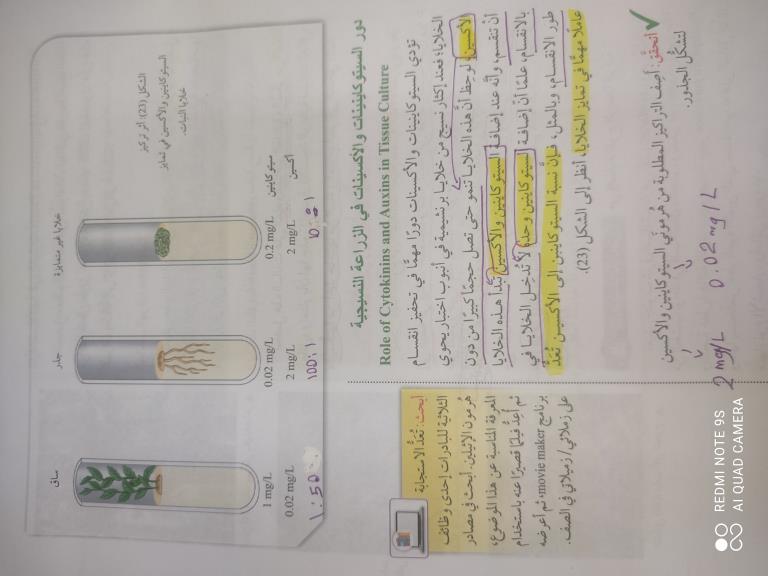 دور السيتوكاينينات والأكسينات في الزراعة النسيجية
Role of Cytokinins and Auxins in Tissue Culture
تؤدي السيتوكاينينات والأكسينات دورًا مهمًّا في تحفيز انقسام
الخلايا؛ فعند إكثار نسيج من خلايا برنشيمية في أنبوب اختبار يحوي
الأكسين، لوحظ أنَّ هذه الخلايا تنمو حتى تصل حجمًا كبيرًا من دون
أنْ تنقسم، وأنَّه عند إضافة السيتوكاينين والأكسين تبدأ هذه الخلايا
بالانقسام، علمًا أنَّ إضافة السيتوكاينين وحده لا تُدخِل الخلايا في
طور الانقسام. وبالمثل، فإنَّ نسبة السيتوكاينين إلى الأكسين تُعَدُّ
عاملًا مهمًّا في تمايز الخلايا، أنظر إلى الشكل (23).
✓ أتحقَّق: أصِف التراكيز المطلوبة من هُرموني السيتوكاينين والأكسين
لتشكُّل الجذور.
2 mg/L 0.02 mg/L
الشكل (23): أثر تركيز
السيتوكاينين والأكسين في تمايز
خلايا النبات.
ساق
جذر
خلايا غير متمايزة
1 mg/L 0.02 mg/L 0.2 mg/L سيتوكاينين
0.02 mg/L 2 mg/L 2 mg/L أكسين
1:50 100:1 10:1
أبحث: تُعَدُّ الاستجابة
الثلاثية للبادرات إحدى وظائف
هُرمون الإثيلين. أبحث في مصادر
المعرفة المناسبة عن هذا الموضوع،
ثم أُعِدُّ فيلمًا قصيرًا عنه باستخدام
برنامج movie maker، ثم أعرضه
على زملائي/ زميلاتي في الصف.
REDMI NOTE 9S
AI QUAD CAMERA